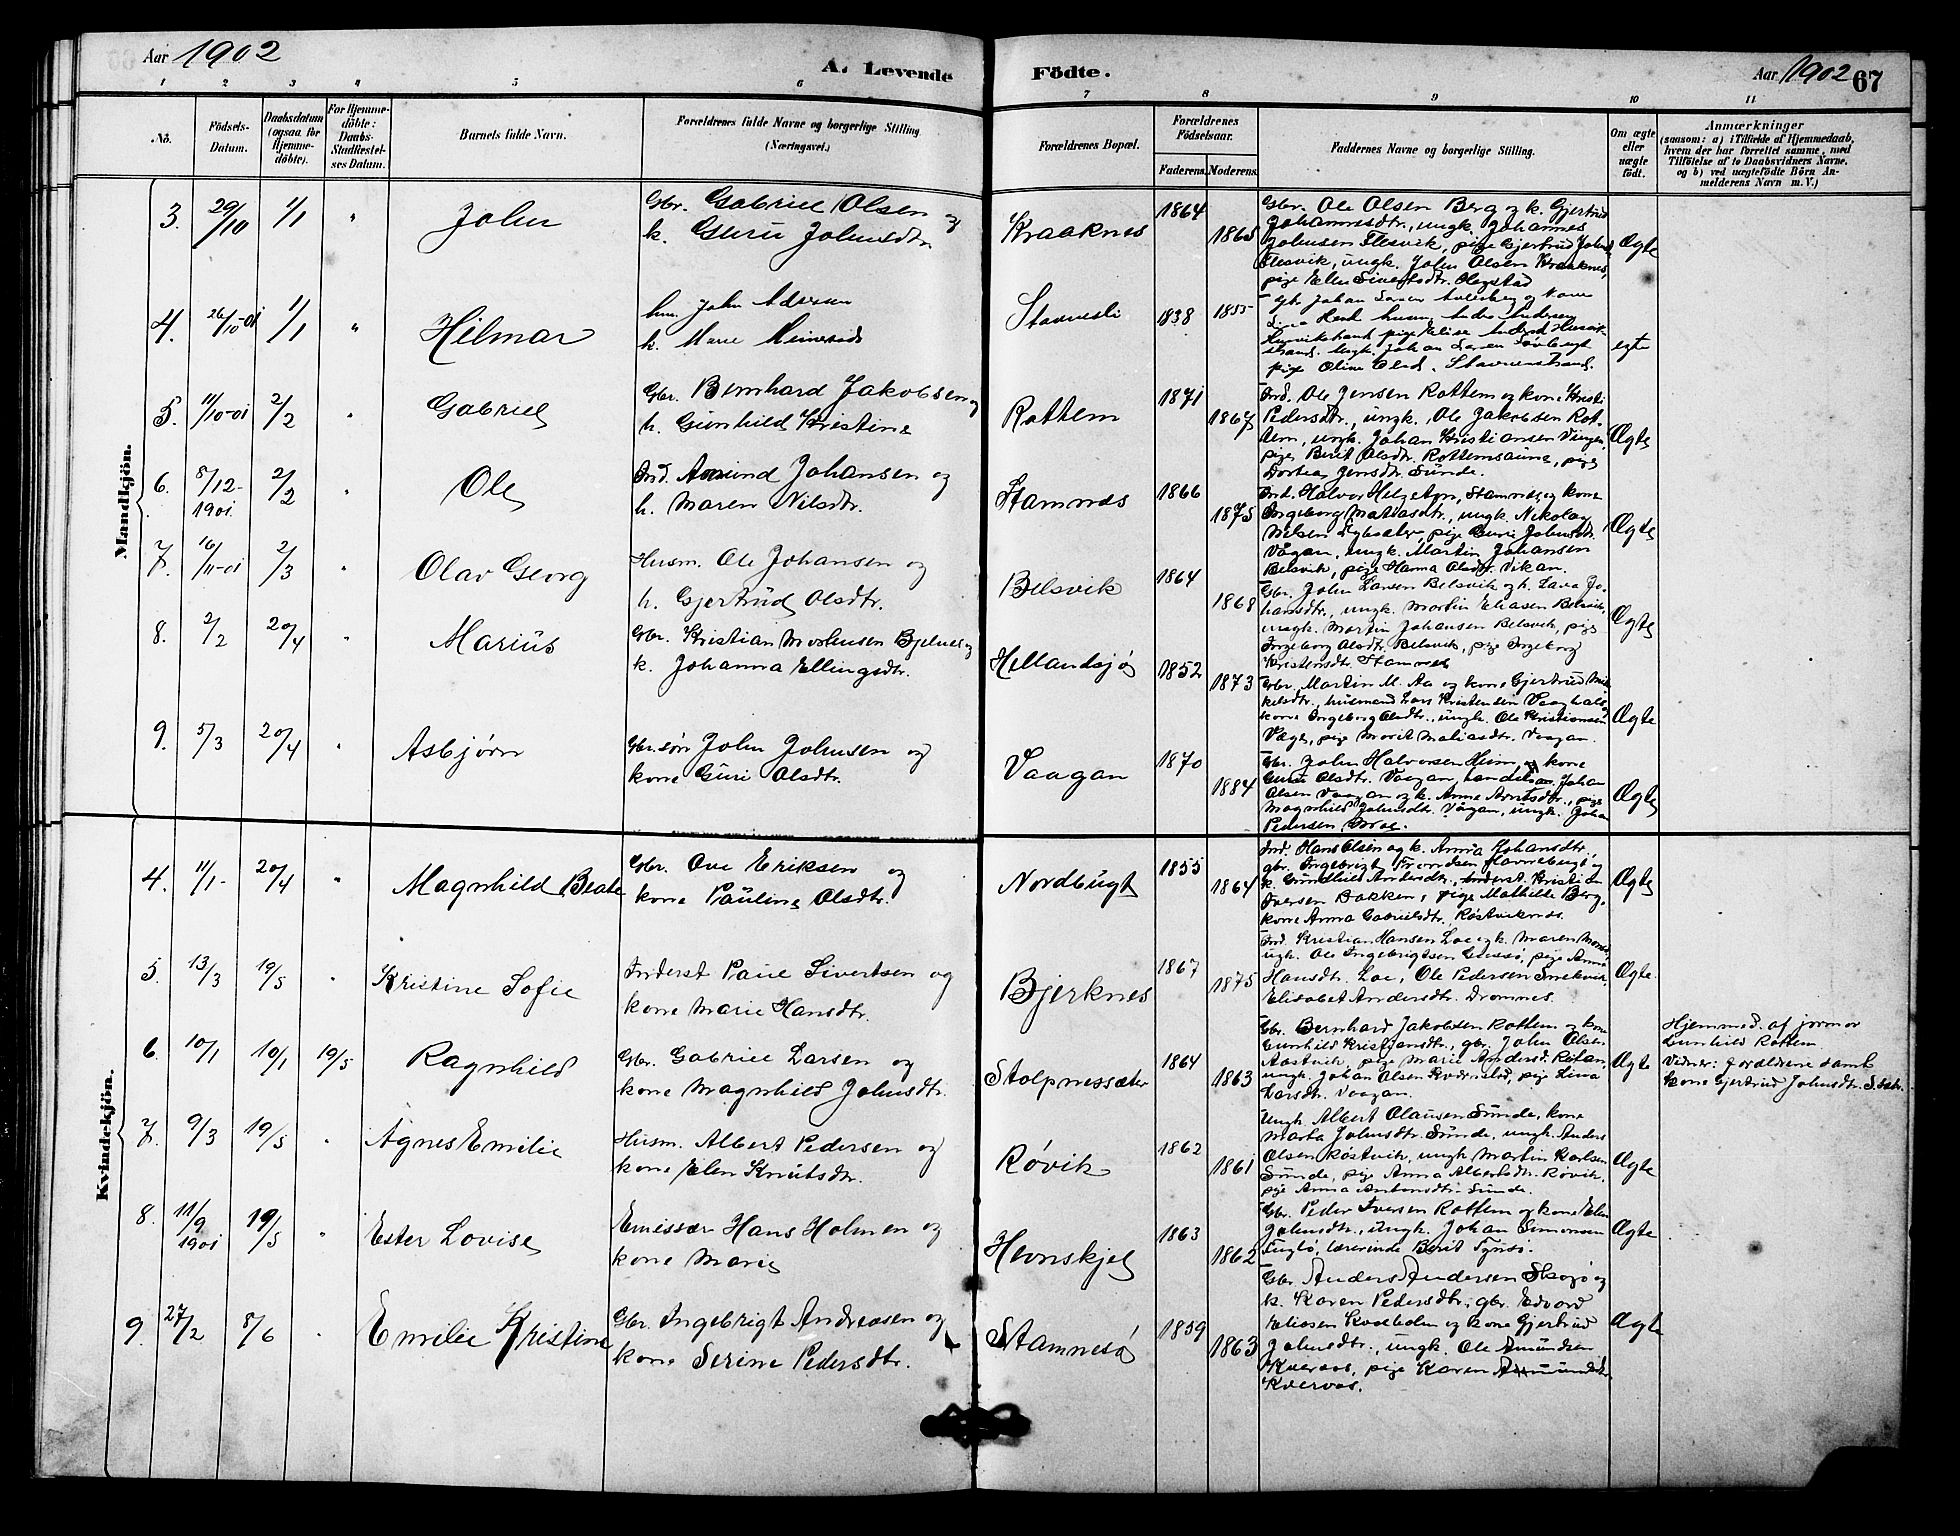 Aar 1902
A. Levende Födte.
Aar 1902 67
1 2 3 4 5 6 7 8 9 10 11
No.
Födsels-Datum.
Daabsdatum (ogsaa for Hjemmedöbte).
For Hjemmedöbte: Daabs-Stadfæstelses Datum.
Barnets fulde Navn.
Forældrenes fulde Navne og borgerlige Stilling. (Næringsvei.)
Forældrenes Bopæl.
Forældrenes Födselsaar.
Faderens. Moderens.
Faddernes Navne og borgerlige Stilling.
Om ægte eller uægte födt.
Anmærkninger
(saasom: a) i Tilfælde af Hjemmedaab, hvem der har forrettet samme, med Tilföielse af to Daabsvidners Navne, og b) ved uægtefödte Börn Anmelderens Navn m. V.)
Mandkjön.
3. 29/10 1/1 " John
Gbr. Gabriel Olsen og
k. Guru Johnsdtr.
Kraaknes 1864 1865
Gbr. Ole Olsen Berg og k. Gjertrud
Johannesdtr., ungk. Johannes
Johnsen Flesvik, pige Gjertrud Johnsd.
Flesvik, ungk. John Olsen Kraaknes,
pige Ellen Sivertsdtr.
Ægte
4. 26/10-01 1/1 " Hilmar
hm. John
k. Marie
1838 1855
ægte
5. 11/10-01 2/2 " Gabriel
Gbr. Bernhard Jakobsen og
h. Gunhild Kristine
Rottem 1871 1867
Ind. Ole Jensen Rottem og kone Kristi
Pedersdtr., ungk. Ole Jakobsen Rot-
tem, ungk. Johan Kristiansen
pige Berit Olsdtr. Rottemsaune, pige
Dortea Jensdtr. Sunde.
Ægte
6. 8/12-1901 2/2 " Ole
Ind. Amund Johansen og
h. Maren Nilsdtr.
Stamnes 1866 1875
Ind. Halvor Helgesen, Stamnes, og kone
Ingeborg Matiasdtr., ungk. Nikolay
Nilsen, pige Guri Johnsdtr.
Vågan, ungk. Martin Johansen
Belsvik, pige Hanna Olsdtr. Vikan.
Ægte
7. 16/11-01 2/3 " Olav Georg
Husm. Ole Johansen og
h. Gjertrud Olsdtr.
Belsvik 1864 1868
Gbr. John Larsen Belsvik og h. Lava Jo-
hansdtr., ungk. Martin Eliasen Belsvik,
ungk. Martin Johansen Belsvik, pige
Ingeborg Olsdtr. Belsvik, pige Ingeborg
Kristensdtr. Stamnes
Ægte
8. 2/2 20/4 " Marius
Gbr. Kristian Mortensen Bjelnes og
k. Johanna Ellingsdtr.
Hellandsjø 1852 1873
Gbr. Martin M. Aa og kone Gjertrud Mik-
kelsdtr., husmand Lars Kristensen Vaaghals og
kone Ingeborg Olsdtr., ungk. Ole Kristiansen
Vaage, pige Marit Matiasdtr. Vaagan.
Ægte
9. 5/3 20/4 " Asbjørn
Gbr.søn John Johnsen og
kone Guri Olsdtr.
Vaagan 1870 1884
Gbr. John Halvorsen Heim, og kone
Guru Olsdtr. Vaagan, Johan
Olsen Vaagan og k. Anna Arntsdtr., pige
Magnhild Johnsdtr. Vågan, ungk. Johan
Pedersen Moe.
Ægte
Kvindekjön.
4. 11/1- 20/4 " Magnhild Beate
Gbr. Ove Eriksen og
kone Pauline Olsdtr.
Nordbugt 1855 1864
Ind. Hans Olsen og k. Anna Johansdtr.,
gbr. Ingebrigt Trondsen Havnebugt og
k. Gundhild Andersdtr., inderst Kristian
Iversen Bakken, pige Mathilde Berg,
kone Anna Gabrielsdtr. Røstviknes.
Ægte
5. 13/3 19/5 " Kristine Sofie
Inderst Paul Sivertsen og
kone Marie Hansdtr.
Bjerknes 1867 1875
Ind. Kristian Hansen Loe og k. Maren
ugk. Ole Ingebrigtsen, pige Anna
Hansdtr. Loe, Ole Pedersen
Elisabet Andersdtr. Dromnes.
Ægte.
6. 10/1 10/1 19/5 Ragnhild
Gbr. Gabriel Larsen og
kone Magnhild Johnsdtr.
Stolpnessæter 1864 1863
Gbr. Bernhard Jakobsen Rottem og kone
Gunhild Kristiansdtr., gbr. John Olsen
pige Marie Andersd. Røtan,
ungk. Johan Olsen, pige Lina
Larsdtr. Vaagan.
Ægte
Hjemmed. af jormor
Gunhild Rottem.
Vidner: Forældrene samt
kone Gjertrud Johnsdtr.
7. 9/3 19/5 " Agnes Emilie
Husm. Albert Pedersen og
kone Elen Knutsdtr.
Røvik 1862 1861
Ungk. Albert Olausen Sunde, kone
Marta Johnsdtr. Sunde, ungk. Anders
Olsen Røstvik, ungk. Martin Karlsen
Sunde, pige Anna Albertsdtr. Røvik,
pige Anna Antonsdtr. Sunde.
Ægte
8. 11/9 1901 19/5 " Ester Lovise
Emissær Hans Holmen og
kone Marie
Hevnskjel 1863 1862
Gbr. Peder Iversen Rottem og kone Elen
Johnsdtr., ungk. Johan Simonsen
Fuglø, lærerinde Berit
Ægte
9. 27/2 8/6 " Emilie Kristine
Gbr. Ingebrigt Andreasen og
kone Serine Pedersdtr.
Stamnesø 1859 1863
Gbr. Anders Andersen Skogø og
k. Karen Pedersdtr., gbr. Edvard
Eliasen og kone Gjertrud
Johnsdtr., ungk. Ole Amundsen
Kvernos, pige Karen Amundsdtr.
Kvernos.
Ægte